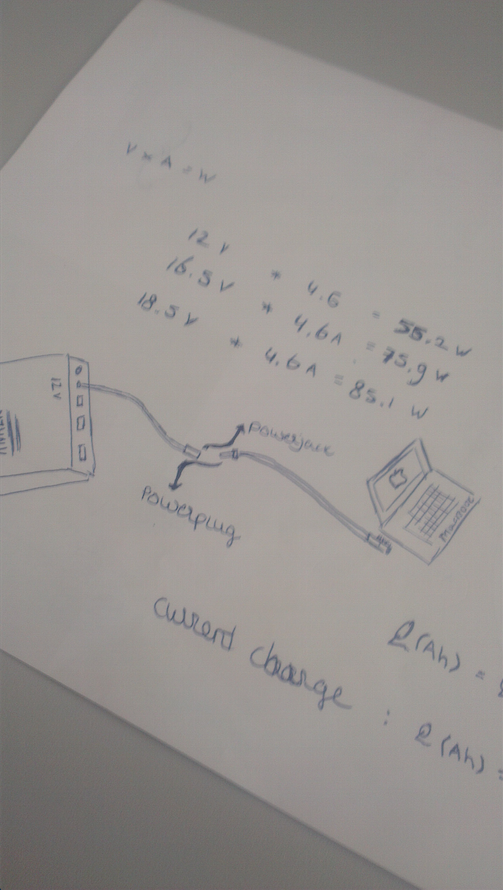 V * A = W
12 V * 4.6 = 55.2 W
16.5 V * 4.6A = 75.9 W
18.5 V * 4.6A = 85.1 W
12V
Powerjack
Powerplug
Q(Ah) =
Current charge : Q(Ah) =